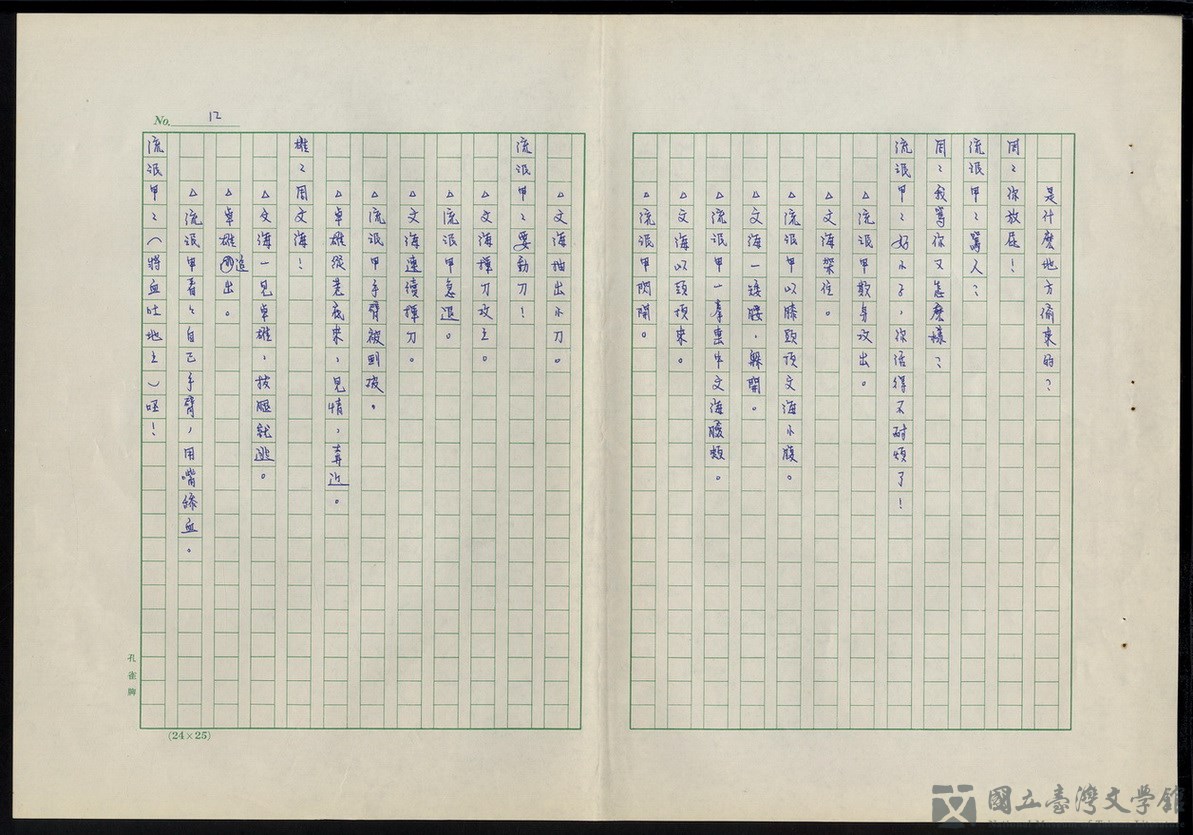 是什麼地方偷來的？
周：你放屁！
流氓甲：罵人？
周：我罵你又怎麼樣？
流氓甲：好小子，你活得不耐煩了！
△流氓甲欺身攻出。
△文海架住。
△流氓甲以膝頭頂文海小腹。
△文海一矮腰，躲開。
△流氓甲一拳擊中文海腮頰。
△文海以頭頂來。
△流氓甲閃開。
△文海抽出小刀。
流氓甲：要動刀！
△文海揮刀攻上。
△流氓甲急退。
△文海連續揮刀。
△流氓甲手臂被劃破。
△卓雄從巷底來，見情，奔近。
雄：周文海！
△文海一見卓雄，拔腿就逃。
△卓雄追出。
△流氓甲看看自己手臂，用嘴舔血。
流氓甲：（將血吐地上）呸！
No. 12
孔雀牌
(24×25)
國立臺灣文學館